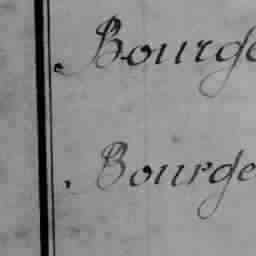 Bourge
Bourge